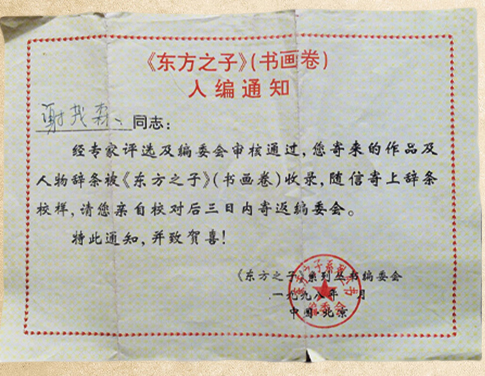 《东方之子》(书画卷)
入编通知
谢茂森 同志：
经专家评选及编委会审核通过，您寄来的作品及
人物辞条被《东方之子》(书画卷)收录，随信寄上辞条
校样，请您亲自校对后三日内寄返编委会。
特此通知，并致贺喜！
《东方之子》系列丛书编委会
一九九八年 月
中国·北京